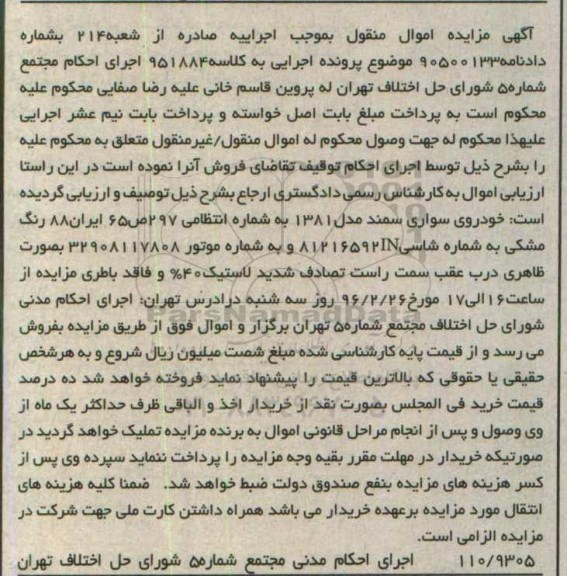 آگهی مزایده اموال منقول بموجب اجراییه صادره از شعبه۲۱۴ بشماره
دادنامه۹۰۵۰۰۱۳۳ موضوع پرونده اجرایی به کلاسه۹۵۱۸۸۴ اجرای احکام مجتمع
شماره۵ شورای حل اختلاف تهران له پروین قاسم خانی علیه رضا صفایی محکوم علیه
محکوم است به پرداخت مبلغ بابت اصل خواسته و پرداخت بابت نیم عشر اجرایی
علیهذا محکوم له جهت وصول محکوم له اموال منقول/غیرمنقول متعلق به محکوم علیه
را بشرح ذیل توسط اجرای احکام توقیف تقاضای فروش آنرا نموده است در این راستا
ارزیابی اموال به کارشناس رسمی دادگستری ارجاع بشرح ذیل توصیف و ارزیابی گردیده
است: خودروی سواری سمند مدل۱۳۸۱ به شماره انتظامی ۲۹۷ص۶۵ ایران۸۸ رنگ
مشکی به شماره شاسیIN۸۱۲۱۶۵۹۲ و به شماره موتور ۳۲۹۰۸۱۱۷۸۰۸ بصورت
ظاهری درب عقب سمت راست تصادف شدید لاستیک۴۰% و فاقد باطری مزایده از
ساعت۱۶الی۱۷ مورخ۹۶/۲/۲۶ روز سه شنبه درادرس تهران: اجرای احکام مدنی
شورای حل اختلاف مجتمع شماره۵ تهران برگزار و اموال فوق از طریق مزایده بفروش
می رسد و از قیمت پایه کارشناسی شده مبلغ شصت میلیون ریال شروع و به هرشخص
حقیقی یا حقوقی که بالاترین قیمت را پیشنهاد نماید فروخته خواهد شد ده درصد
قیمت خرید فی المجلس بصورت نقد از خریدار اخذ و الباقی ظرف حداکثر یک ماه از
وی وصول و پس از انجام مراحل قانونی اموال به برنده مزایده تملیک خواهد گردید در
صورتیکه خریدار در مهلت مقرر بقیه وجه مزایده را پرداخت ننماید سپرده وی پس از
کسر هزینه های مزایده بنفع صندوق دولت ضبط خواهد شد. ضمنا کلیه هزینه های
انتقال مورد مزایده برعهده خریدار می باشد همراه داشتن کارت ملی جهت شرکت در
مزایده الزامی است.
۱۱۰/۹۳۰۵ اجرای احکام مدنی مجتمع شماره۵ شورای حل اختلاف تهران
ParsNamadData